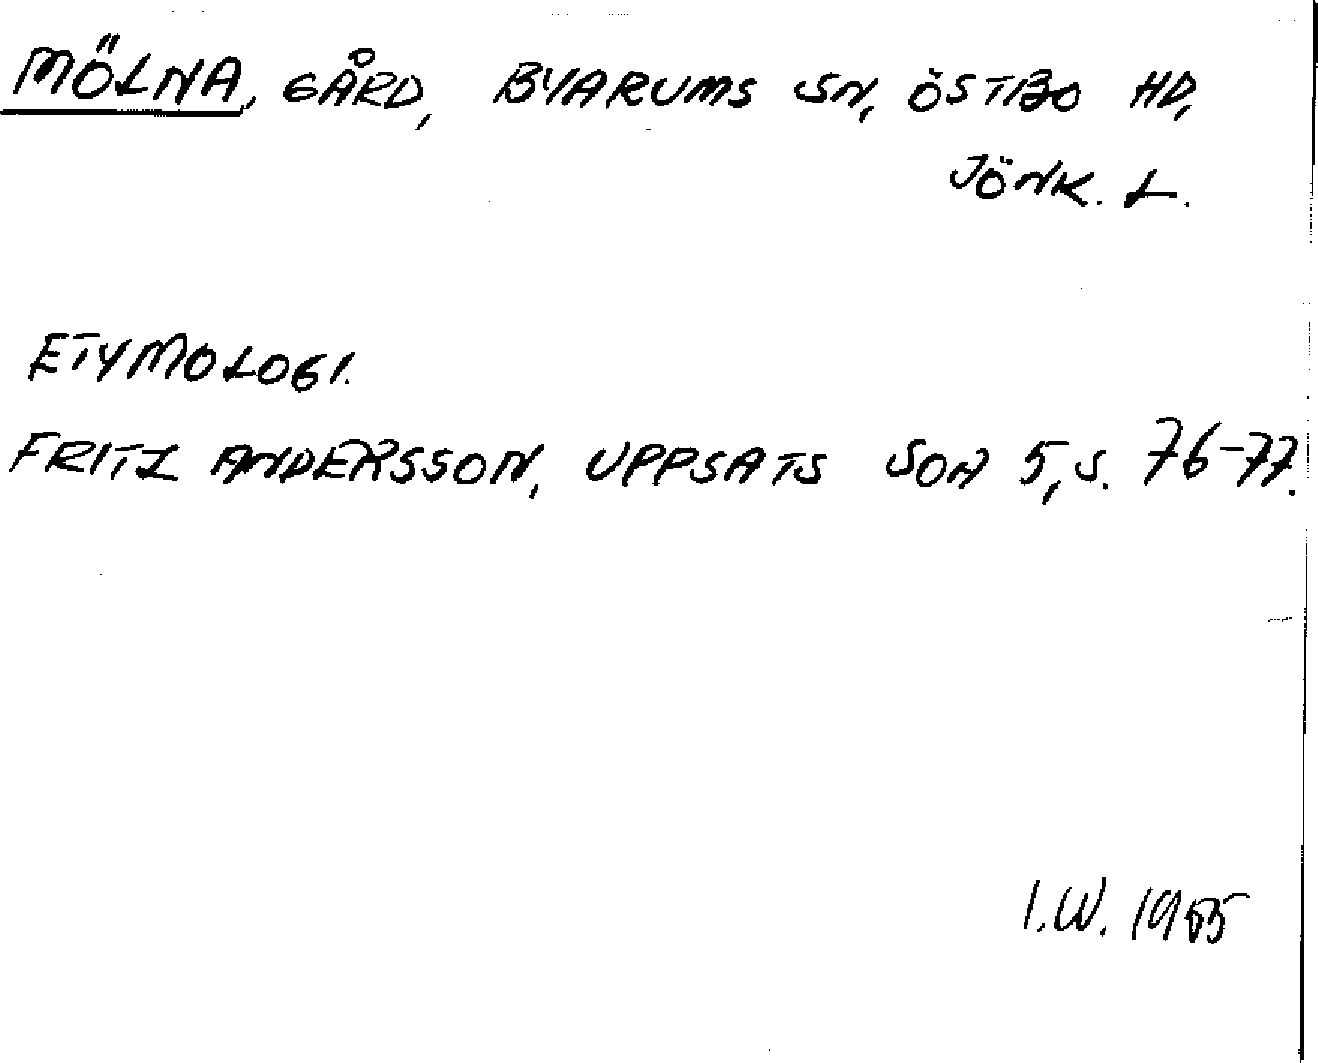 MÖLNA, GÅRD, BYARUMS SN, ÖSTBO HD,
JÖNK. L.
ETYMOLOGI.
FRITZ ANDERSSON, UPPSATS SOA 5, S. 76-77.
I.W. 1985